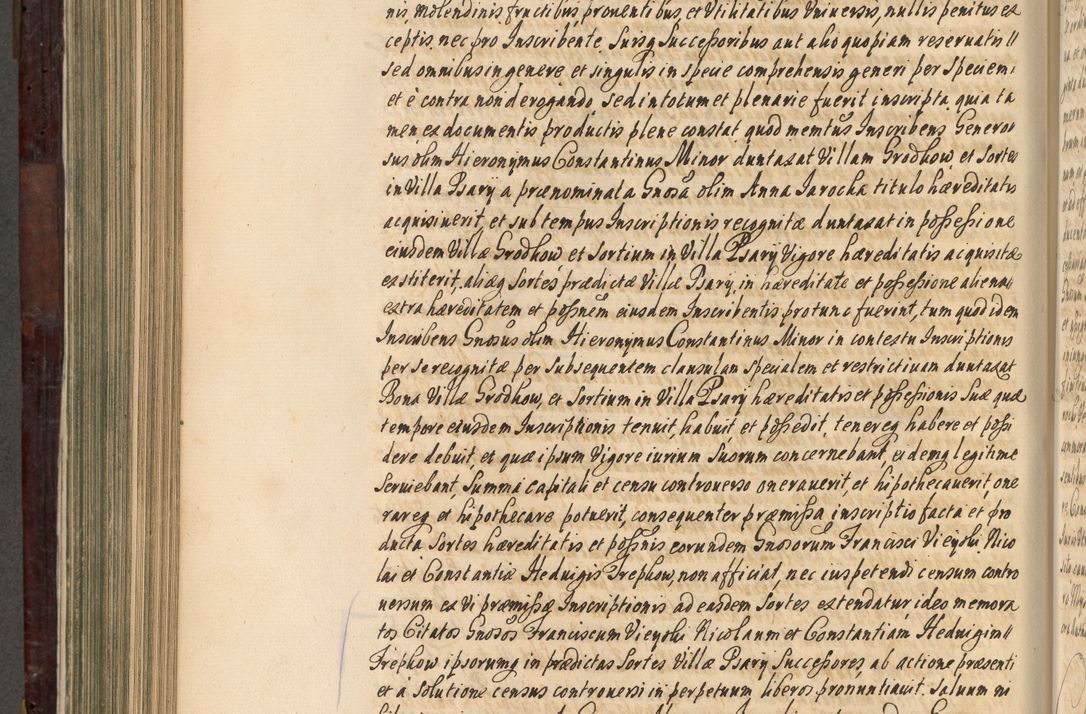 nis Molendinis fructibus proventibus, et Vtilitatibus Vniversis, nullis penitus ex
ceptis, nec pro Inscribente Suisq Successoribus aut alio quopiam reservatis //
sed omnibus in genere et singulis in specie comprehensis generi per Speciem,
et è contra non derogando, sed in totum et plenarie fuerit inscripta, quia ta
men ex documentis productis plene constat quod memtus Inscribens Genero
sus olim Hieronymus Constantinus Minor duntaxat Villam Grodkow et Sortes
in Villa Psary a prænominata Gnosa olim Anna Jarocka titulo hæreditatis
acquisiuerit, et sub tempus Inscriptionis recognitæ duntaxat in possessione
eiusdem Villæ Grodkow et Sortium in Villa Psary Vigore hæreditatis acquisitæ
exstiterit, aliæq Sortes prædictæ Villæ Psary, in hæreditate et possessione aliena //
extra hæreditatem et possnem eiusdem Inscribentis protunc fuerint, tum quod idem
Inscribens Gnosus olim Hieronymus Constantinus Minor in contextu Inscriptionis
per se recognitæ per Subsequentem clausulam Specialem et restrictiuam duntaxat
Bona Villæ Grodkow, et Sortium in Villa Psary hæreditatis et possessionis Suæ quæ
tempore eiusdem Inscriptionis tenuit, habuit et possedit, tenereq habere et possi
dere debuit, et quæ ipsum Vigore iurium Suorum concernebant, eidemq legitime
Seruiebant, Summa capitali et censu controverso onerauerit, et hipothecauerit, one
rareq et hipothecare potuerit, consequenter præmissa inscriptio facta et pro
ducta Sortes hæreditatis et possnis eorundem Gnosorum Francisci Vieyski Nico
lai et Constantiæ Heduigis Trepkow, non afficiat, nec ius petendi censum contro
uersum ex Vi præmissæ Inscriptionis ad easdem Sortes extendatur, ideo memora
tos Citatos Gnosos Franciscum Vieyski Nicolaum et Constantiam Heduigim //
Trepkow ipsorumq in prædictas Sortes Villæ Psary Successores, ab actione præsenti
et à Solutione census controuersi in perpetuum liberos pronuntiauit. Saluum ni